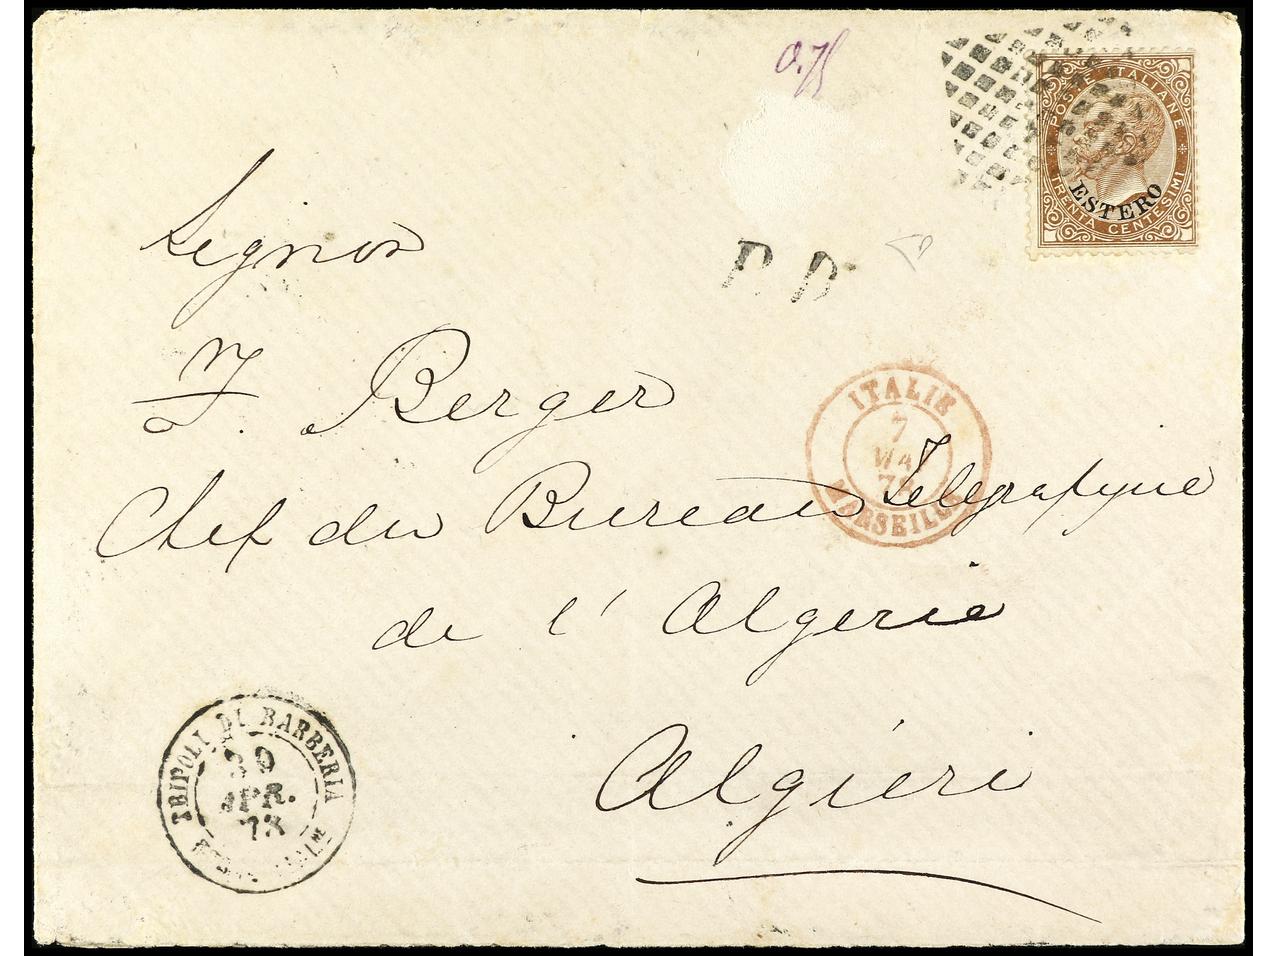 0.75
POSTE ITALIANE
ESTERO
TRENTA CENTESIMI
P.D.
Signor
F. Berger
Chef du Bureau Télégrafique
de l'Algerie
Algieri
ITALIE
7
MAI
MARSEILLE
TRIPOLI DI BARBERIA
30
APR.
78